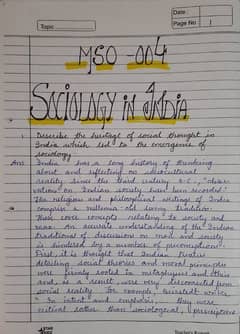 Date :
Page No 1
Topic
MSO - 004
SOCIOLOGY IN INDIA
1 Describe the heritage of social thought in
India which led to the emergence of
sociology
Ans India has a long history of thinking
about and reflecting on sociocultural
reality. Since the third century B.C., "obser-
vations on Indian society have been recorded.
The religious and philosophical writings of India
comprise a millennia long living tradition.
These cover concepts relating to society and
man. An accurate understanding of the Indian
traditions of discussion on man and society
is hindered by a number of preconceptions.
First it is thought that Indian
social theories and moral principles
were firmly rooted in metaphysics and
and, as a result were very disconnected from
social reality. For example,
"In intent and emphasis, they were
critical rather than sociological, prescriptions
Teacher's Signature